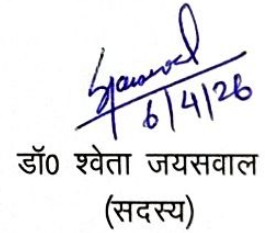 6/4/26
डॉ0 श्वेता जयसवाल
(सदस्य)